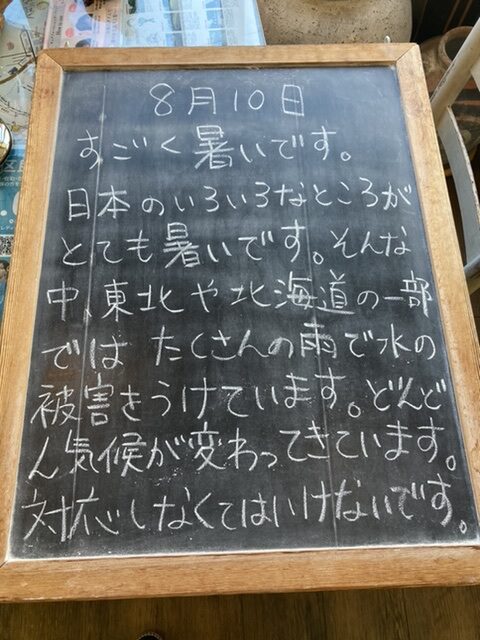 8月10日
すごく暑いです。
日本のいろいろなところが
とても暑いです。そんな
中、東北や北海道の一部
では たくさんの雨で水の
被害をうけています。どんど
ん気候が変わってきています。
対応しなくてはいけないです。